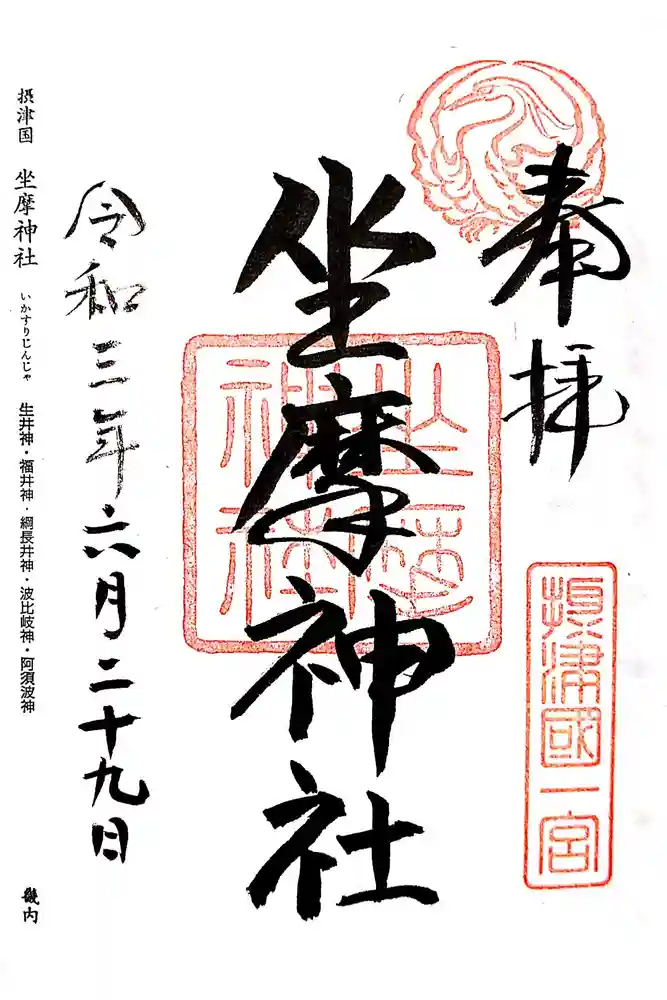 奉拝
摂津國一宮
坐摩神社
坐摩神社
令和三年六月二十九日
摂津国 坐摩神社 いかすりじんじゃ 生井神・福井神・綱長井神・波比岐神・阿須波神 畿内